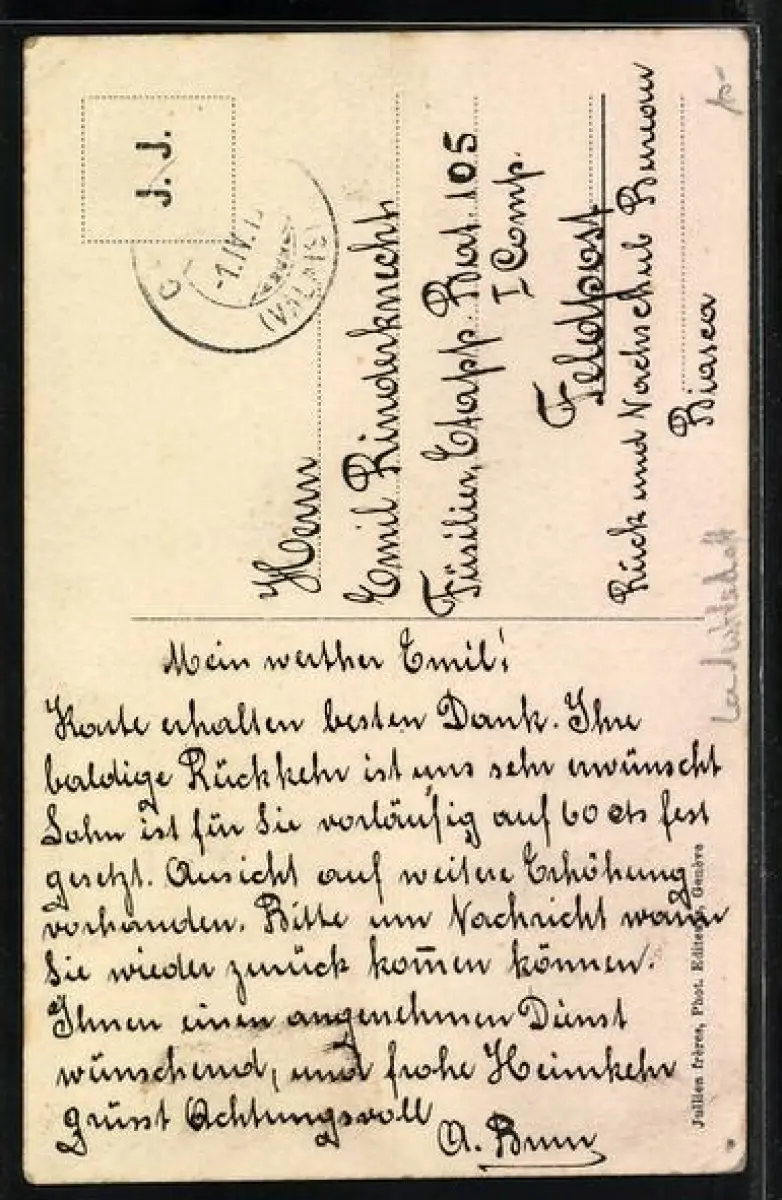 J. J.
-1.IV.1
(VALAIS)
Herrn
Emil Rinderknecht
Füsilier, Etapp. Bat. 105
I Comp.
Feldpost
Rück und Nachschub Bureau
Biasca
Landwirtschaft
Mein werther Emil!
Karte erhalten besten Dank. Ihre
baldige Rückkehr ist uns sehr erwünscht
Lohn ist für Sie vorläufig auf 60 cts fest
gesetzt. Aussicht auf weitere Erhöhung
vorhanden. Bitte um Nachricht wann
Sie wieder zurück kom̅en können.
Ihnen einen angenehmen Dienst
wünschend, und frohe Heimkehr
grüsst Achtungsvoll
A.
Jullien frères, Phot. Editeurs, Genève